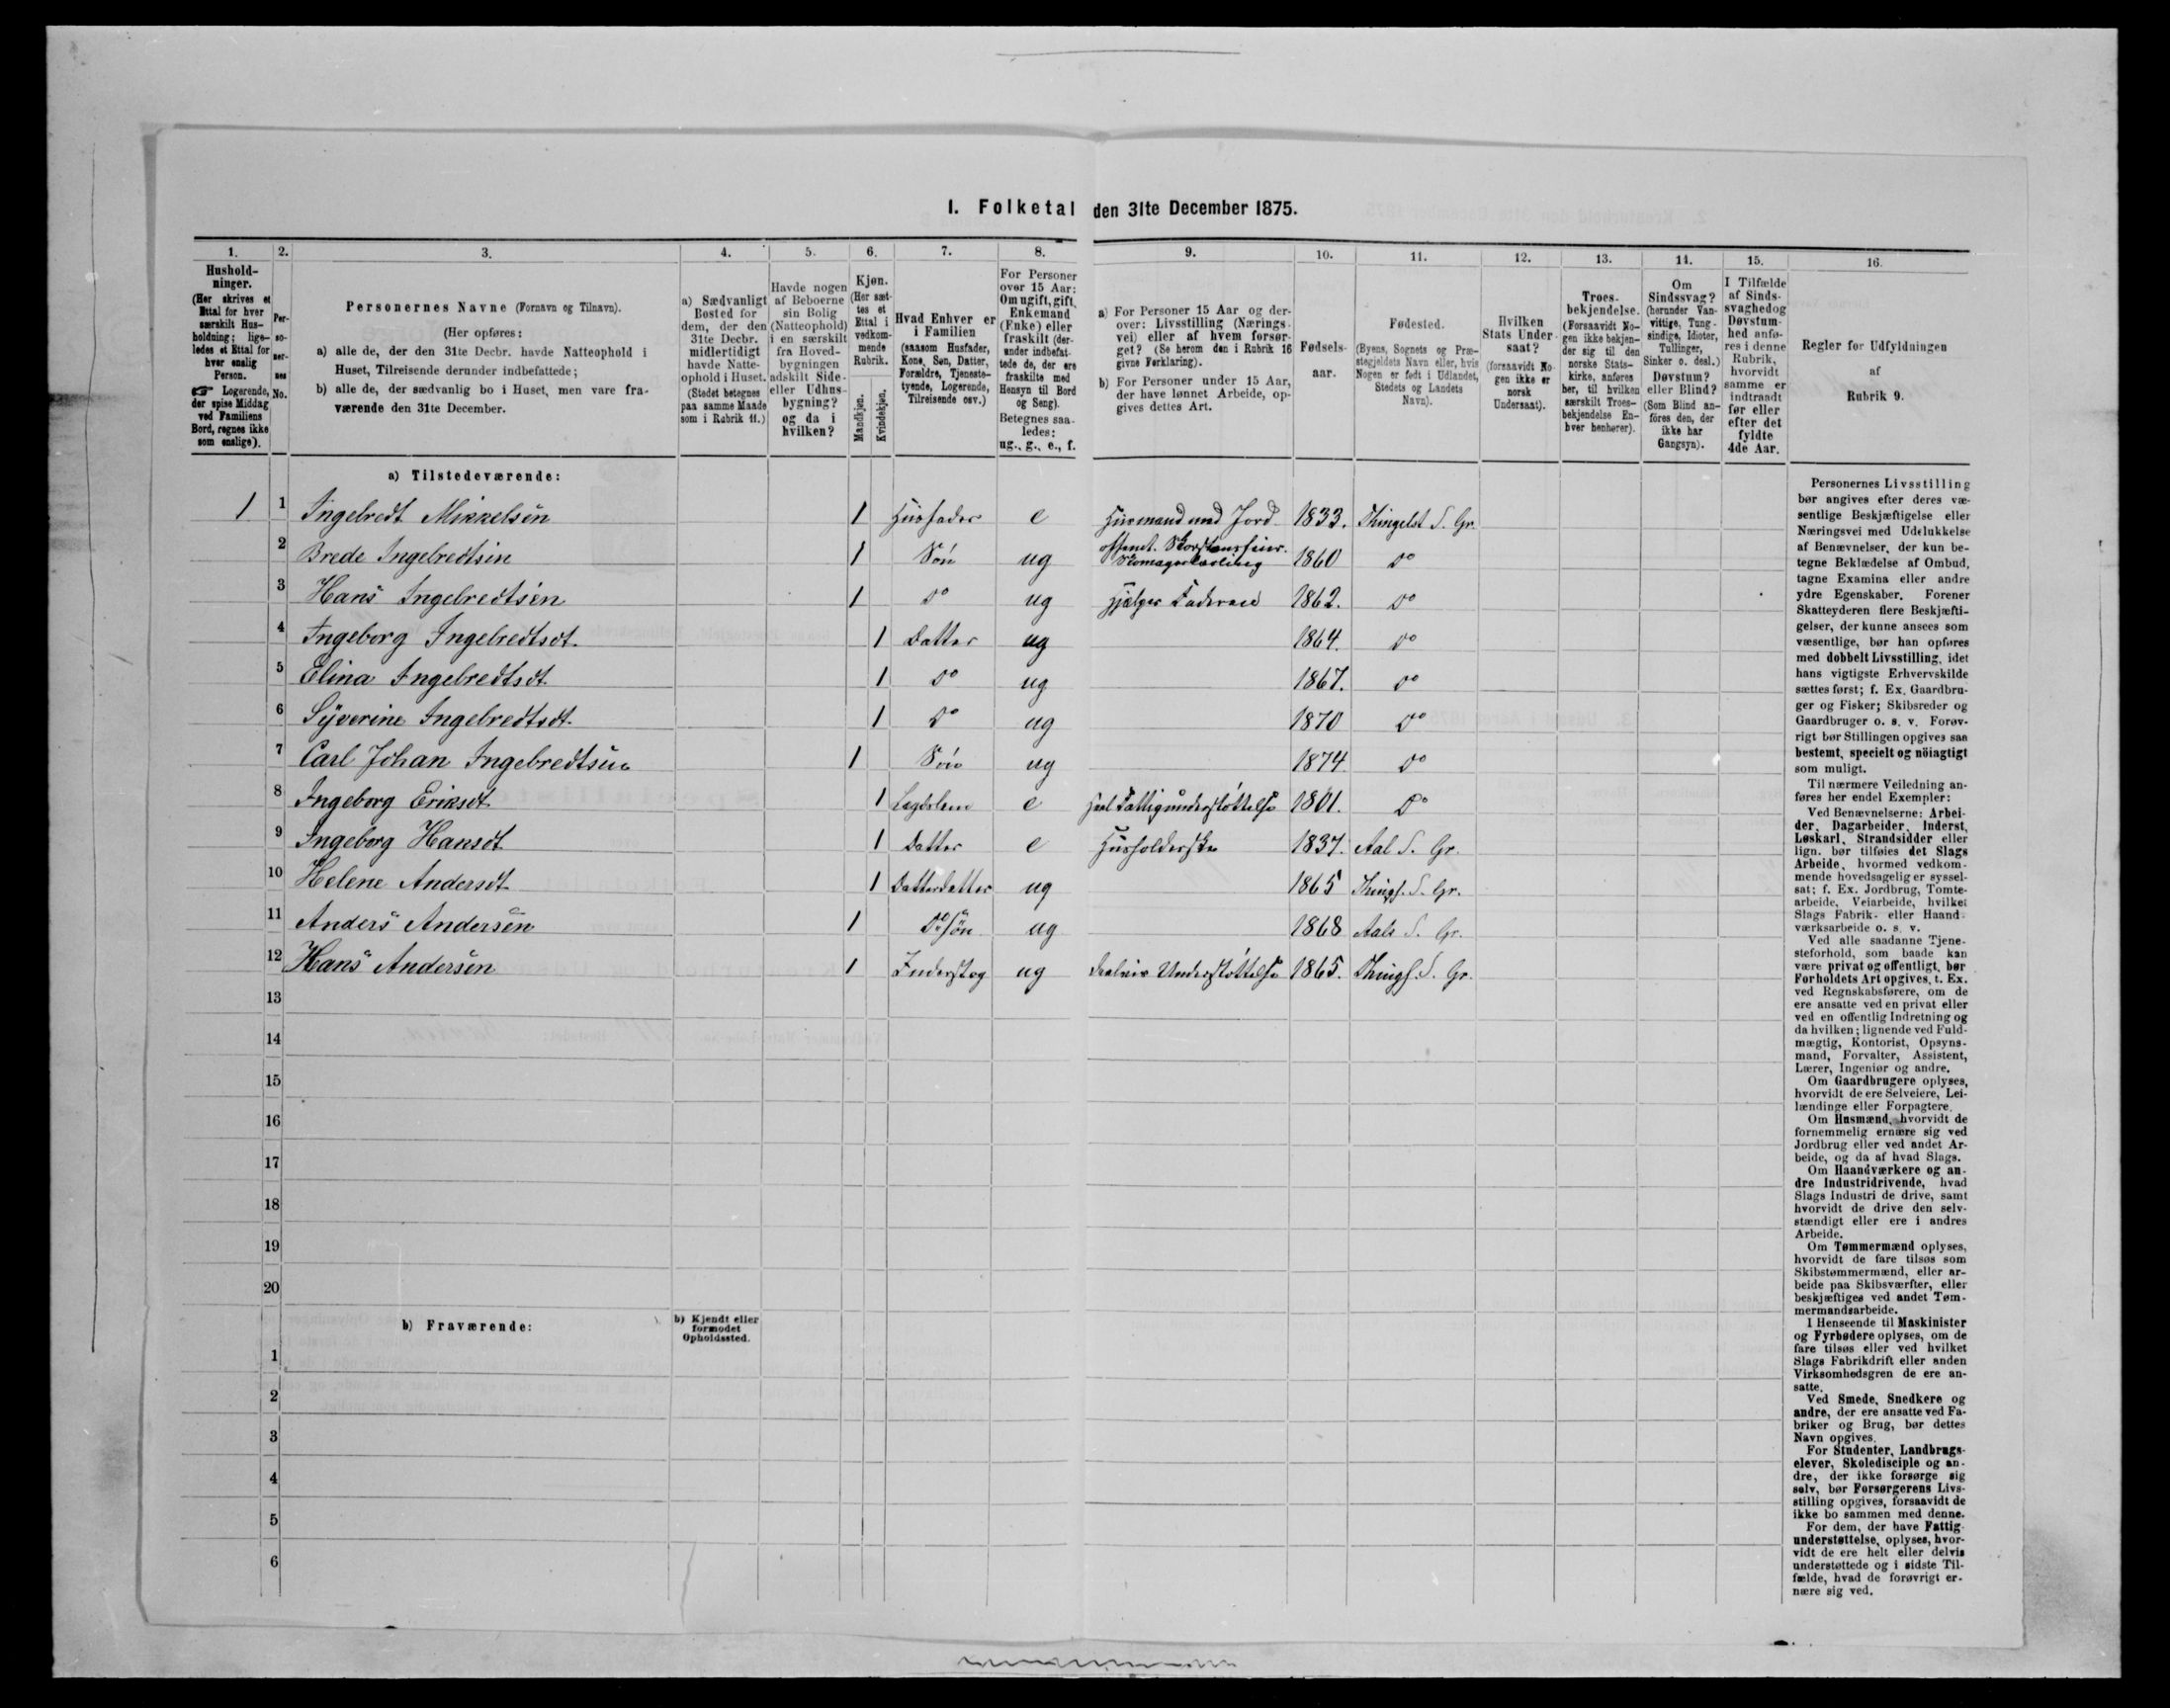 I. Folketal den 31te December 1875.
1. 2. 3. 4. 5. 6. 7. 8. 9. 10. 11. 12. 13. 14. 15. 16.
Hushold-
ninger.
(Her skrives et
Ettal for hver
særskilt Hus-
holdning; lige-
ledes et Ettal for
hver enslig
Person.
☞ Logerende,
der spise Middag
ved Familiens
Bord, regnes ikke
som enslige).
Per-
so-
ner-
nes
No.
Personernes Navne (Fornavn og Tilnavn).
(Her opføres:
a) alle de, der den 31te Decbr. havde Natteophold i
Huset, Tilreisende derunder indbefattede;
b) alle de, der sædvanlig bo i Huset, men vare fra-
værende den 31te December.
a) Sædvanligt
Bosted for
dem, der den
31te Decbr.
midlertidigt
havde Natte-
ophold i Huset.
(Stedet betegnes
paa samme Maade
som i Rubrik 11.)
Havde nogen
af Beboerne
sin Bolig
(Natteophold)
i en særskilt
fra Hoved-
bygningen
adskilt Side-
eller Udhus-
bygning?
og da i
hvilken?
Kjøn.
(Her sæt-
tes et
Ettal i
vedkom-
mende
Rubrik.
Mandkjøn.
Kvindekjøn.
Hvad Enhver er
i Familien
(saasom Husfader,
Kone, Søn, Datter,
Forældre, Tjeneste-
tyende, Logerende,
Tilreisende osv.)
For Personer
over 15 Aar:
Om ugift, gift,
Enkemand
(Enke) eller
fraskilt (der-
under indbefat-
tede de, der ere
fraskilte med
Hensyn til Bord
og Seng).
Betegnes saa-
ledes:
ug., g., e., f.
a) For Personer 15 Aar og der-
over: Livsstilling (Nærings-
vei) eller af hvem forsør-
get? (Se herom den i Rubrik 16
givne Forklaring).
b) For Personer under 15 Aar,
der have lønnet Arbeide, op-
gives dettes Art.
Fødsels-
aar.
Fødested.
(Byens, Sognets og Præ-
stegjeldets Navn eller, hvis
Nogen er født i Udlandet,
Stedets og Landets
Navn).
Hvilken
Stats Under-
saat?
(forsaavidt No-
gen ikke er
norsk
Undersaat).
Troes-
bekjendelse.
(Forsaavidt No-
gen ikke bekjen-
der sig til den
norske Stats-
kirke, anføres
her, til hvilken
særskilt Troes-
bekjendelse En-
hver henhører).
Om
Sindssvag?
(herunder Van-
vittige, Tung-
sindige, Idioter,
Tullinger,
Sinker o. desl.)
Døvstum?
eller Blind?
(Som Blind an-
føres den, der
ikke har
Gangsyn).
I Tilfælde
af Sinds-
svaghed og
Døvstum-
hed anfø-
res i denne
Rubrik,
hvorvidt
samme er
indtraadt
før eller
efter det
fyldte
4de Aar.
Regler for Udfyldningen
af
Rubrik 9.
a) Tilstedeværende:
1 1 Ingebredt Mikkelsen 1 Husfader e Husmand med Jord 1833. Thingelst. S. Gr.
2 Brede Ingebredtsen 1 Søn ug offentl. Skorstensfeier. 1860 do
3 Hans Ingebredtsen 1 do ug Hjælper Faderen 1862. do
4 Ingeborg Ingebredtsdt. 1 Datter ug 1864. do
5 Elina Ingebredtsdt. 1 do ug 1867. do
6 Syverine Ingebredtsdt. 1 do ug 1870 do
7 Carl Johan Ingebredtsen 1 Søn ug 1874. do
8 Ingeborg Eriksdt. 1 Lægdslem e Heel Fattigunderstøttelse 1801. do
9 Ingeborg Hansdt. 1 Datter e Husholderske 1837. Aal S. Gr.
10 Helene Andersdt. 1 Datterdatter ug 1865 Thingl. S. Gr.
11 Anders Andersen 1 do søn ug 1868 Aals S. Gr.
12 Hans Andersen 1 ug Deelvis Understøttelse 1865. Thingl. S. Gr.
13
14
15
16
17
18
19
20
b) Fraværende:
b) Kjendt eller
formodet
Opholdssted.
1
2
3
4
5
6
Personernes Livsstilling
bør angives efter deres væ-
sentlige Beskjæftigelse eller
Næringsvei med Udelukkelse
af Benævnelser, der kun be-
tegne Beklædelse af Ombud,
tagne Examina eller andre
ydre Egenskaber. Forener
Skatteyderen flere Beskjæfti-
gelser, der kunne ansees som
væsentlige, bør han opføres
med dobbelt Livsstilling, idet
hans vigtigste Erhvervskilde
sættes først; f. Ex. Gaardbru-
ger og Fisker; Skibsreder og
Gaardbruger o. s. v. Forøv-
rigt bør Stillingen opgives saa
bestemt, specielt og nöiagtigt
som muligt.
Til nærmere Veiledning an-
føres her endel Exempler:
Ved Benævnelserne: Arbei-
der, Dagarbeider, Inderst,
Løskarl, Strandsidder eller
lign. bør tilføies det Slags
Arbeide, hvormed vedkom-
mende hovedsagelig er syssel-
sat; f. Ex. Jordbrug, Tomte-
arbeide, Veiarbeide, hvilket
Slags Fabrik- eller Haand-
værksarbeide o. s. v.
Ved alle saadanne Tjene-
steforhold, som baade kan
være privat og offentligt, bør
Forholdets Art opgives, t. Ex.
ved Regnskabsførere, om de
ere ansatte ved en privat eller
ved en offentlig Indretning og
da hvilken; lignende ved Fuld-
mægtig, Kontorist, Opsyns-
mand, Forvalter, Assistent,
Lærer, Ingeniør og andre.
Om Gaardbrugere oplyses,
hvorvidt de ere Selveiere, Lei-
lændinge eller Forpagtere.
Om Husmænd, hvorvidt de
fornemmelig ernære sig ved
Jordbrug eller ved andet Ar-
beide, og da af hvad Slags.
Om Haandværkere og an-
dre Industridrivende, hvad
Slags Industri de drive, samt
hvorvidt de drive den selv-
stændigt eller ere i andres
Arbeide.
Om Tømmermænd oplyses,
hvorvidt de fare tilsøs som
Skibstømmermænd, eller ar-
beide paa Skibsværfter, eller
beskjæftiges ved andet Tøm-
mermandsarbeide.
I Henseende til Maskinister
og Fyrbødere oplyses, om de
fare tilsøs eller ved hvilket
Slags Fabrikdrift eller anden
Virksomhedsgren de ere an-
satte.
Ved Smede, Snedkere og
andre, der ere ansatte ved Fa-
briker og Brug, bør dettes
Navn opgives.
For Studenter, Landbrugs-
elever, Skoledisciple og an-
dre, der ikke forsørge sig
selv, bør Forsørgerens Livs-
stilling opgives, forsaavidt de
ikke bo sammen med denne.
For dem, der have Fattig-
understøttelse, oplyses, hvor-
vidt de ere helt eller delvis
understøttede og i sidste Til-
fælde, hvad de forøvrigt er-
nære sig ved.